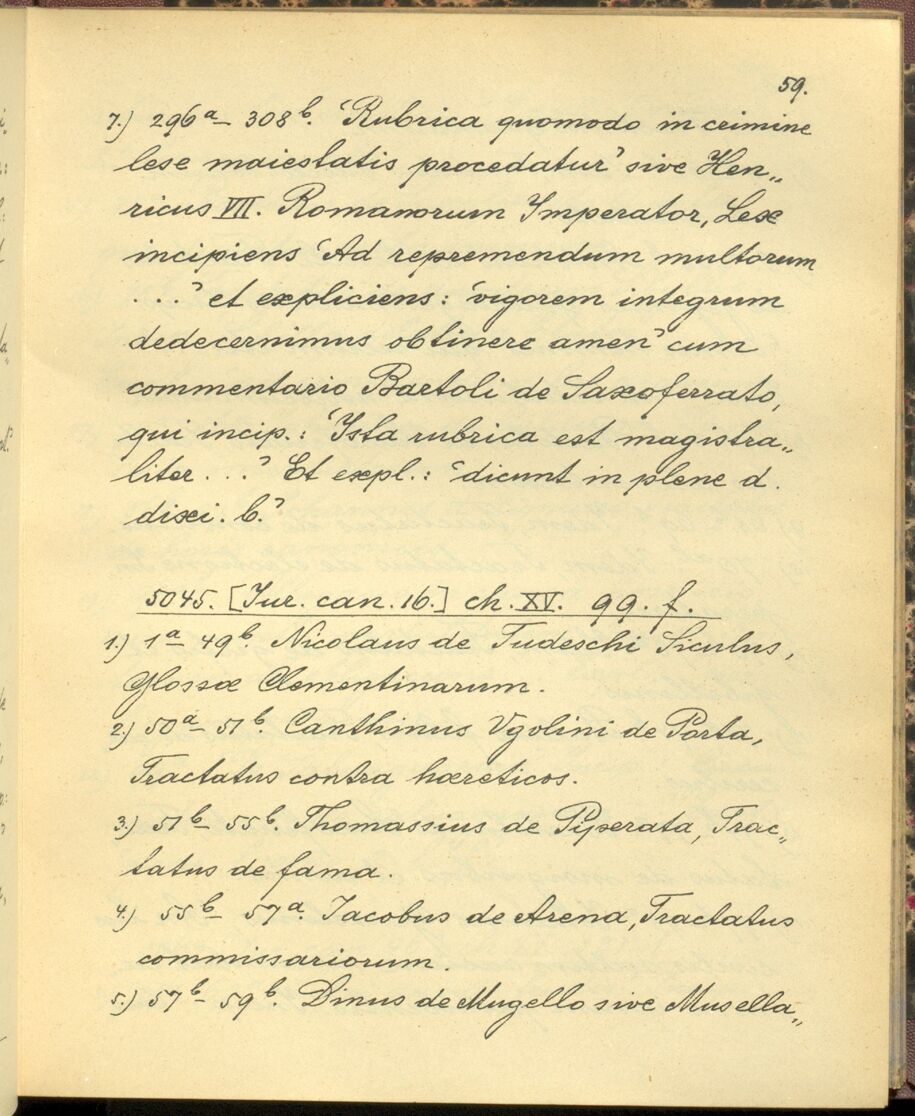 59.
7.) 296ᵃ– 308ᵇ. ‘Rubrica quomodo in crimine
lese maiestatis procedatur’ sive Hen„
ricus VII. Romanorum Imperator, Lex
incipiens ‘Ad repremendum multorum
. . .’ et expliciens: ‘vigorem integrum
dedecernimus obtinere amen’ cum
commentario Bartoli de Saxoferrato,
qui incip.: ‘Ista rubrica est magistra„
liter . . .’ Et expl.: ‘dicunt in plene d.
dixi. b.’
5045. [Iur. can. 16.] ch. XV. 99. f.
1.) 1ᵃ– 49ᵇ. Nicolaus de Tudeschi Siculus,
Glossæ Clementinarum.
2.) 50ᵃ– 51ᵇ. Canthinus Vgolini de Parta,
Tractatus contra hæreticos.
3.) 51ᵇ– 55ᵇ. Thomassius de Piperata, Trac„
tatus de fama.
4.) 55ᵇ– 57ᵃ. Iacobus de Arena, Tractatus
commissariorum.
5.) 57ᵇ– 59ᵇ. Dinus de Mugello sive Musella„